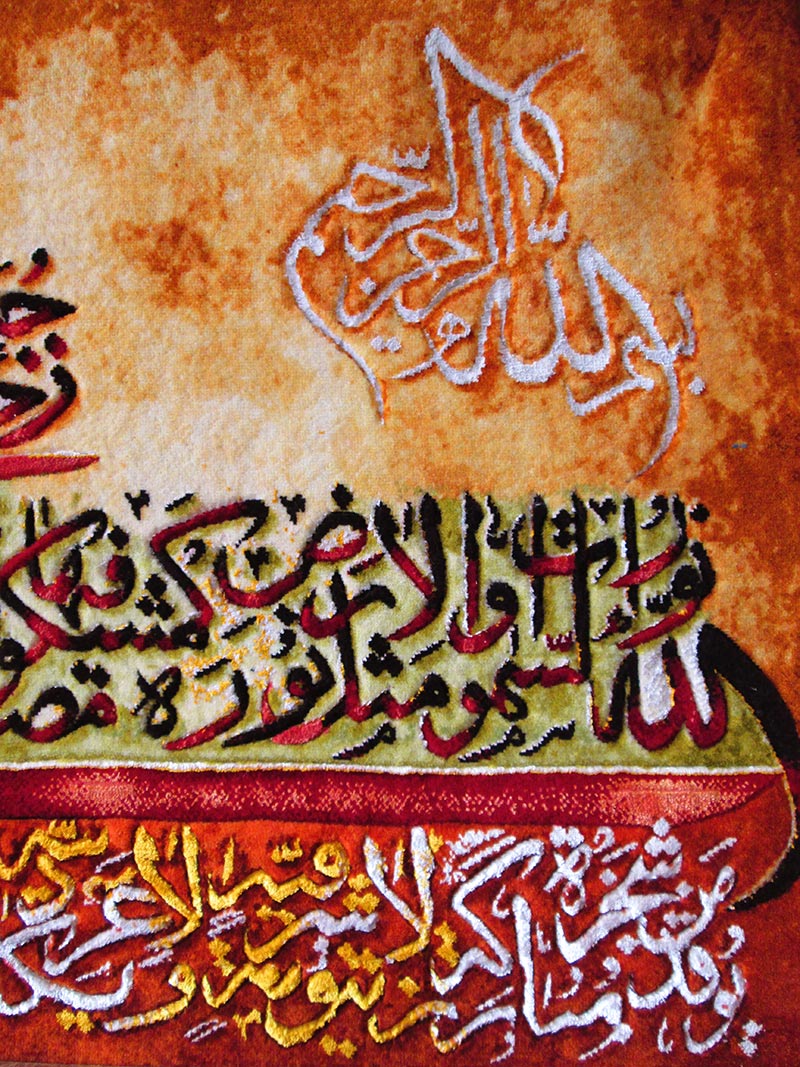 بسم الله الرحمن الرحيم
الله نور السموات والارض مثل نوره كمشكوة فيها
يوقد من شجرة مباركة زيتونة لا شرقية ولا غربية